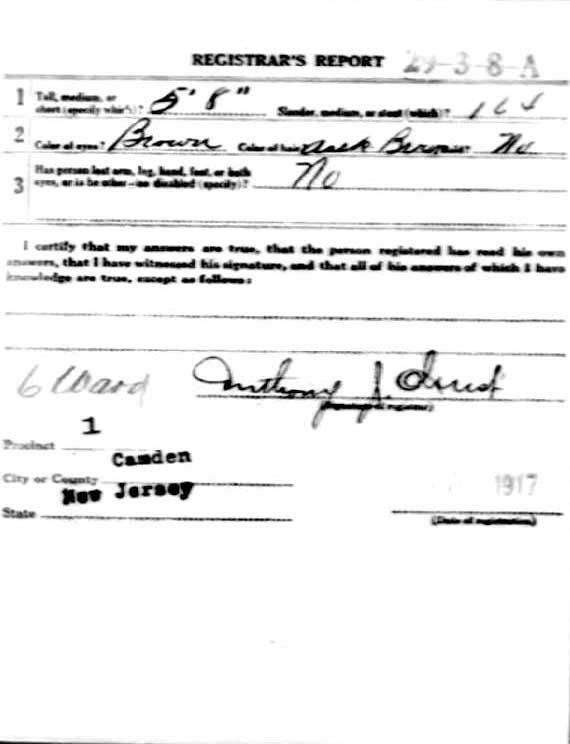 REGISTRAR'S REPORT 29-3-8-A
1 Tall, medium, or short (specify which)? 5' 8" Slender, medium, or stout (which)? 164
2 Color of eyes? Brown Color of hair? Dark Brown No
3 Has person lost arm, leg, hand, foot, or both
eyes, or is he otherwise disabled (specify)? No
I certify that my answers are true, that the person registered has read his own
answers, that I have witnessed his signature, and that all of his answers of which I have
knowledge are true, except as follows:
6 Ward Anthony J.
(Signature of registrar)
Precinct 1
City or County Camden
State New Jersey
1917
(Date of registration)